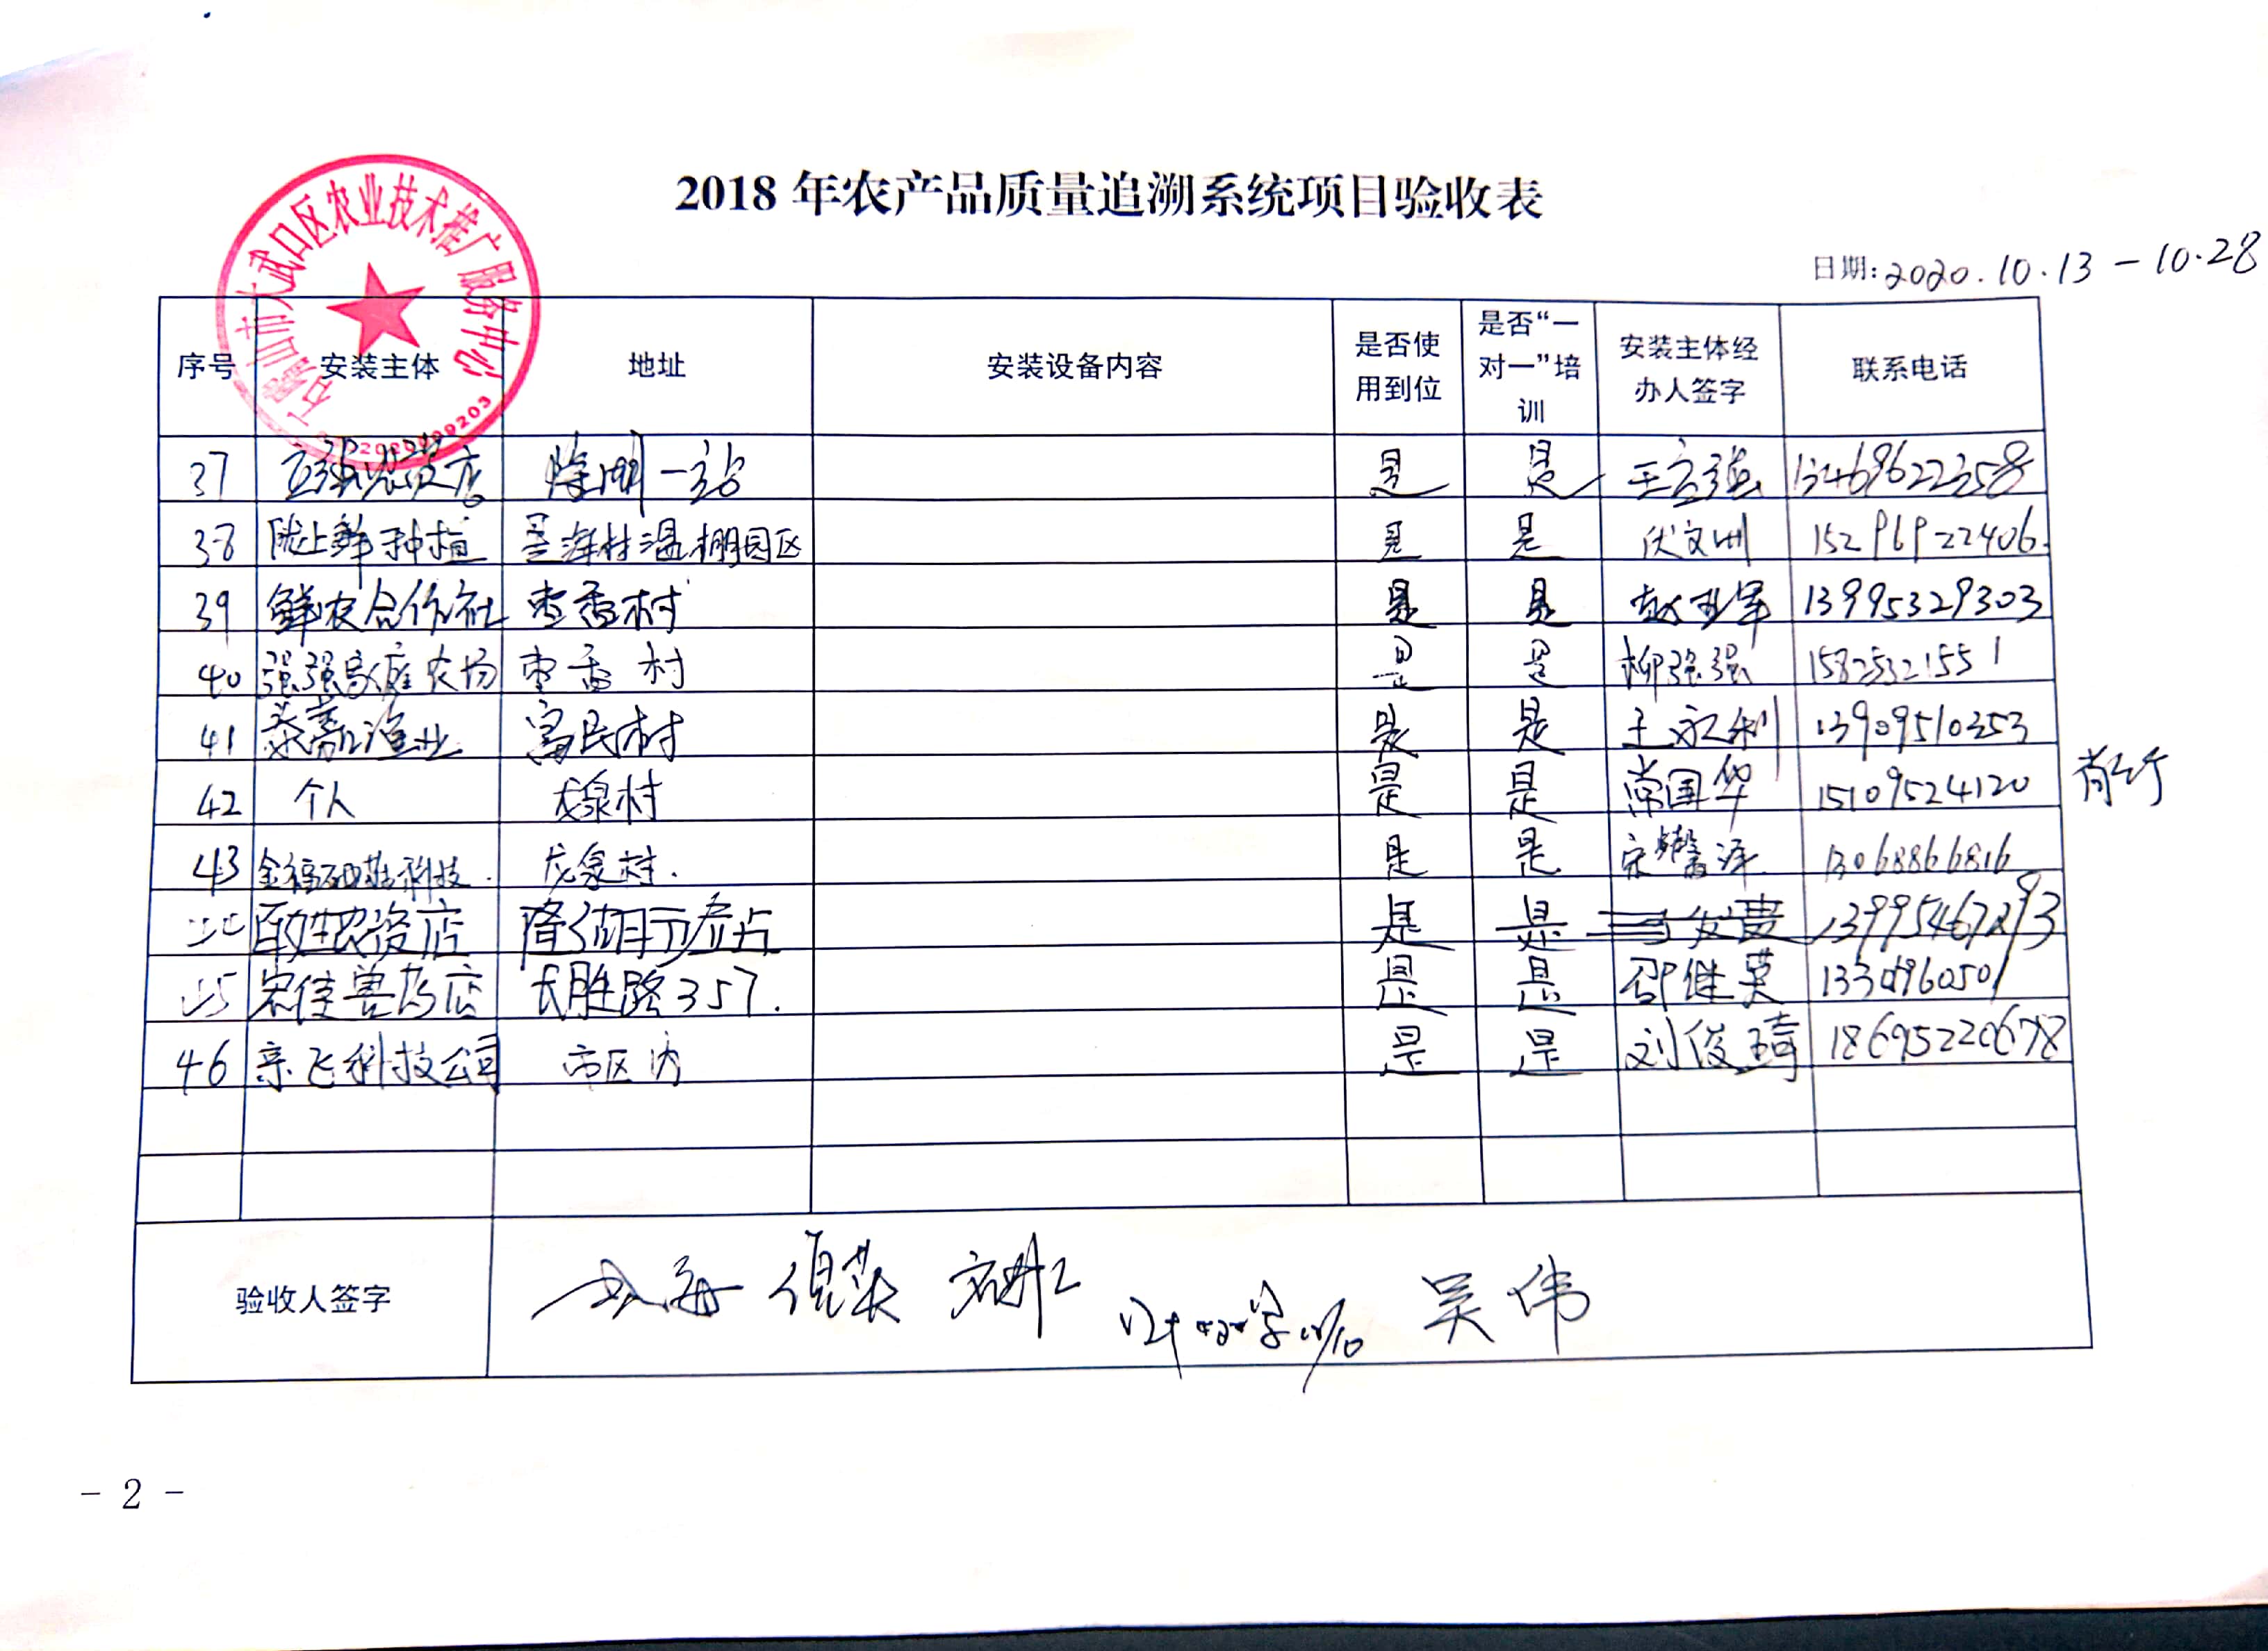 2018 年农产品质量追溯系统项目验收表
石嘴山市大武口区农业技术推广服务中心
日期: 2020.10.13 - 10.28
序号 安装主体 地址 安装设备内容 是否使用到位 是否“一对一”培训 安装主体经办人签字 联系电话
37 一站 是 是 13469622358
38 陇上鲜种植 温棚园区 是 是 伏文洲 15296922406.
39 鲜农合作社 枣香村 是 是 赵亚军 13995329303
40 强强家庭农场 枣香村 是 是 柳强强 15825321551
41 渔业 富民村 是 是 王永利 13909510353
42 个人 龙泉村 是 是 常国华 15109524120
43 科技. 龙泉村. 是 是 宋 泽 13068866816
百姓农资店 隆湖 站 是 是 13995467293
45 宏佳兽药店 长胜路357. 是 是 邵继英 1330960501
46 飞科技公司 市区内 是 是 刘俊琦 18695220678
验收人签字 吴伟
- 2 -